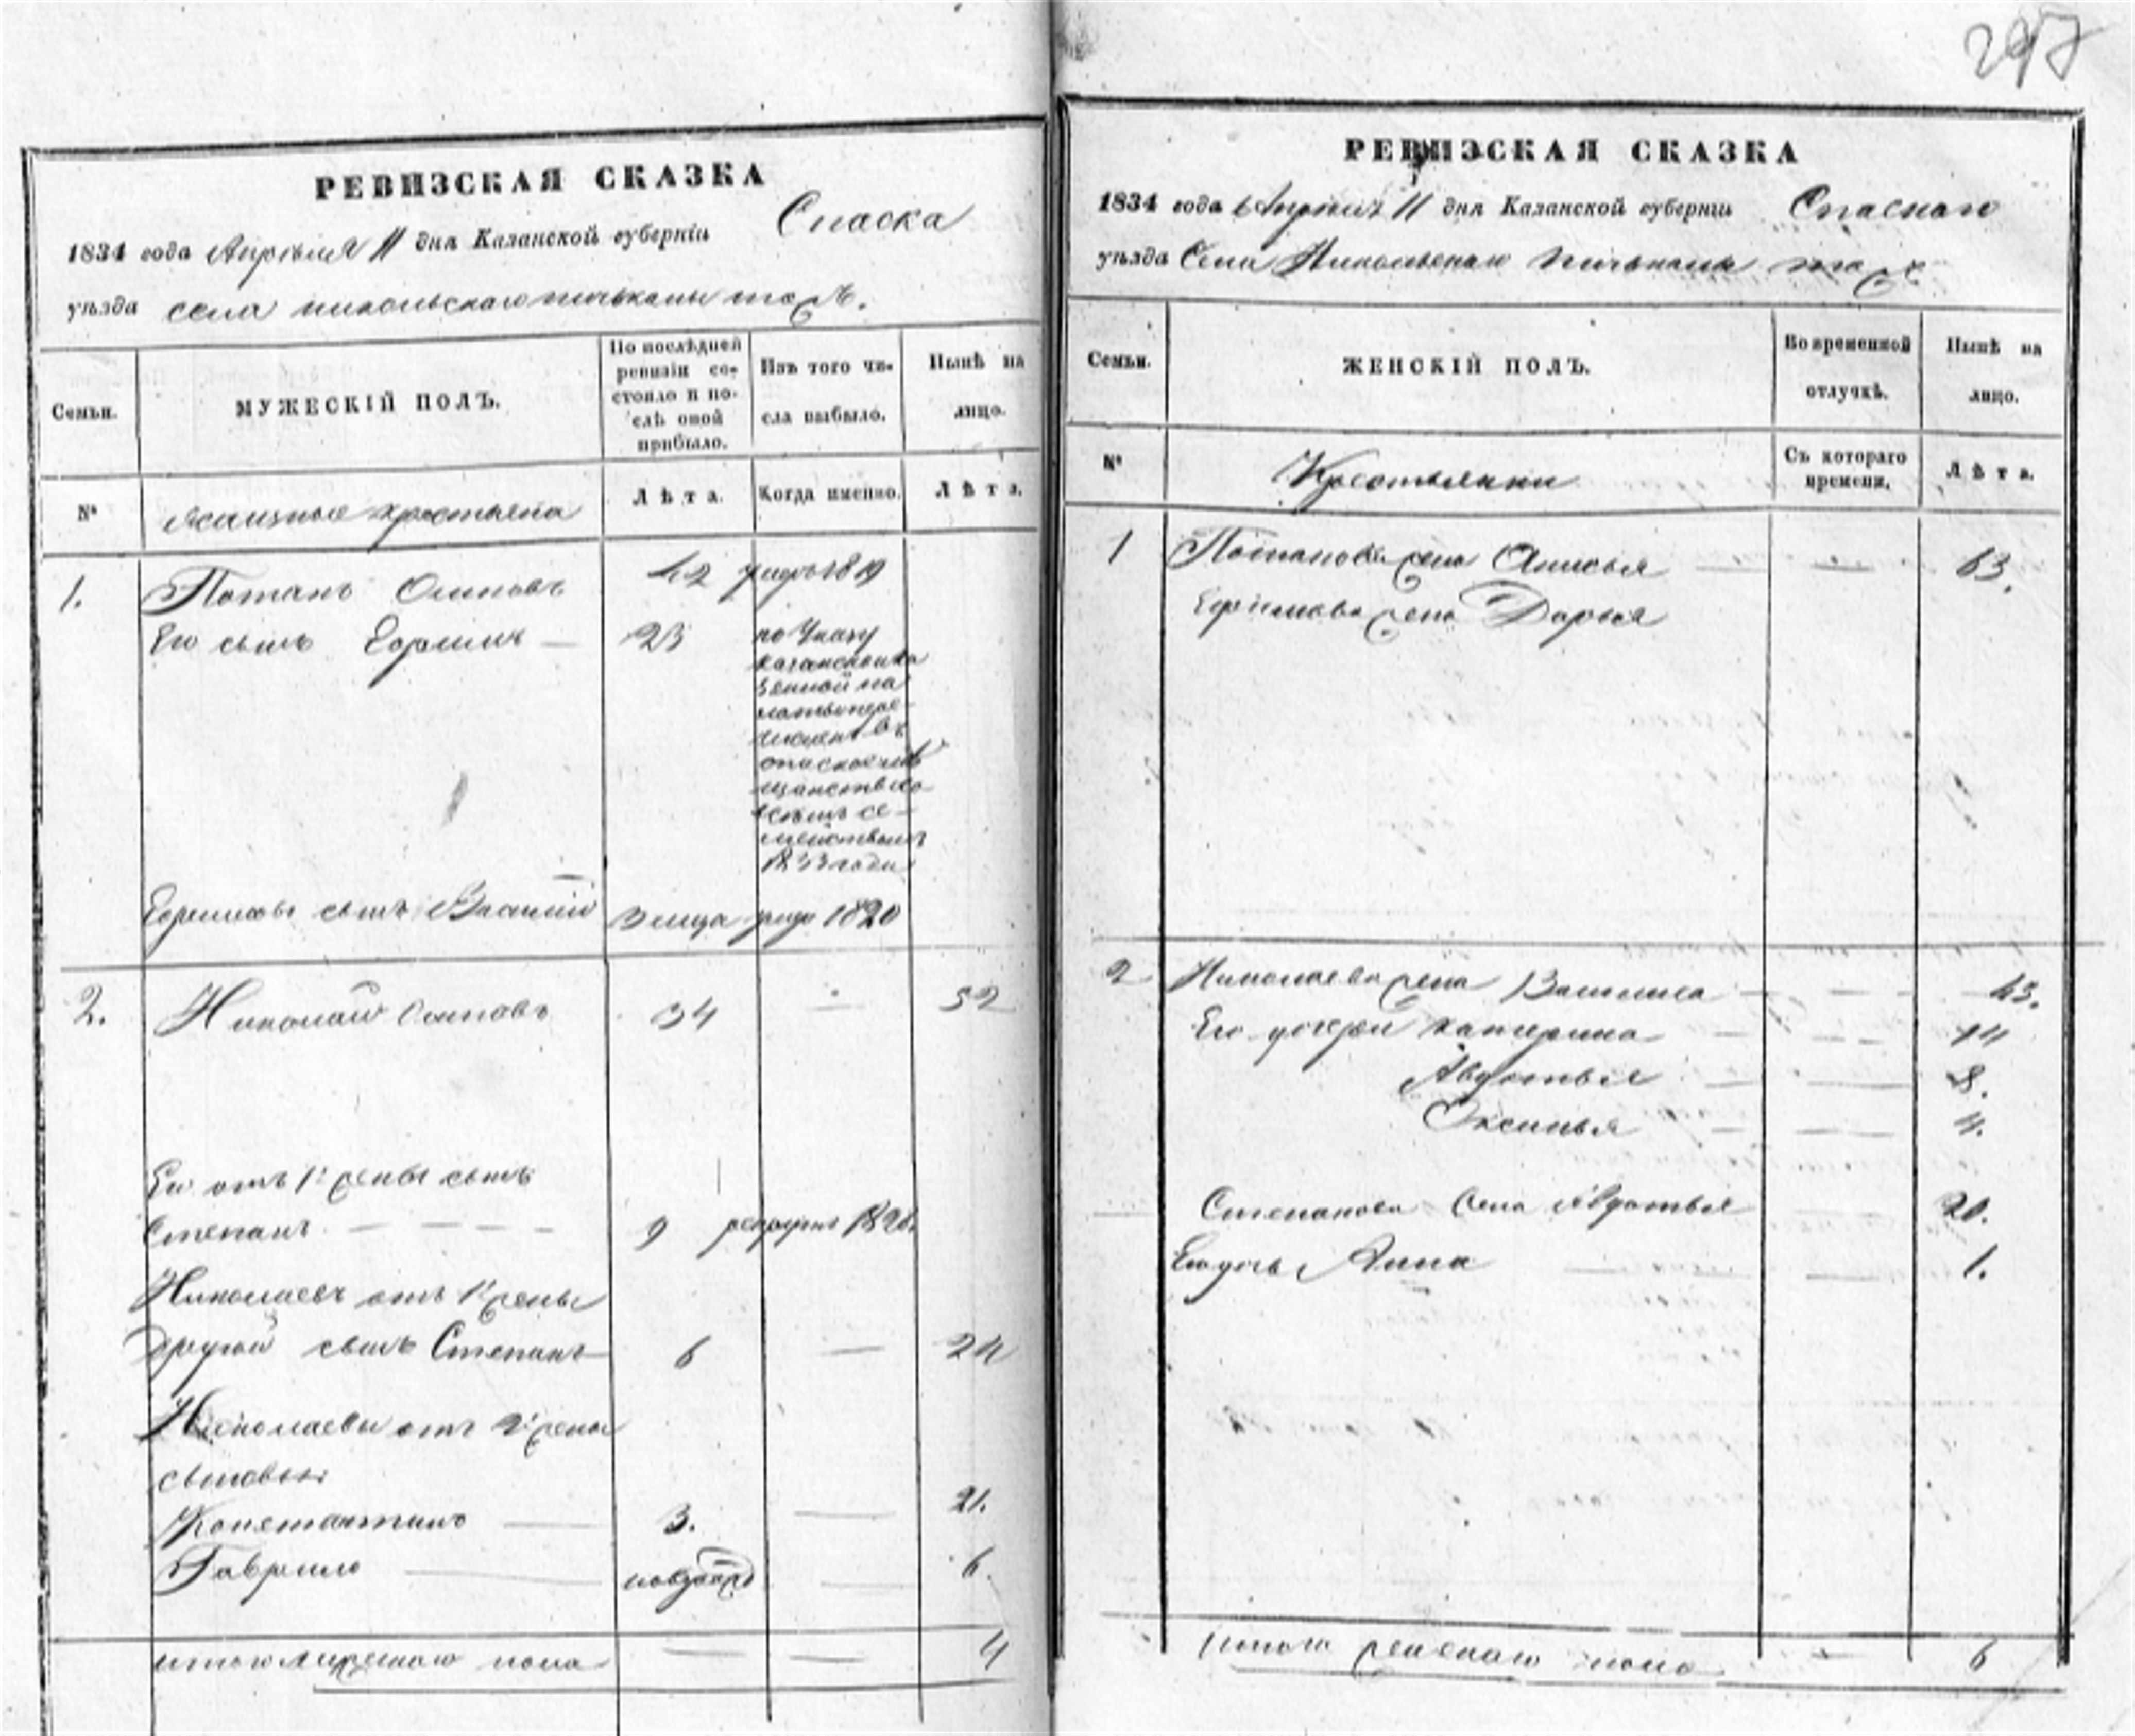 297
РЕВИЗСКАЯ СКАЗКА
1834 года Апреля 11 дня Казанской губернiи Спаска
уѣзда села никольскаго тожъ.
Семьи.
МУЖЕСКIЙ ПОЛЪ.
По послѣдней ревизiи состояло и послѣ оной прибыло.
Изъ того числа выбыло.
Нынѣ на лицо.
№
ясашные крестьяна
Лѣта.
Когда именно.
Лѣта.
1. Потапъ Осиповъ 42 1819
Его сынъ Ефримъ — 23 по Указу
казанской ка
зенной па
латы пере-
численъ въ
спаское мѣ
щанство со
всѣмъ се-
мействомъ
1833 года
Ефримовъ сынъ Василiй 3 меца 1820
2. Николай Осиповъ 34 — 52
Его отъ 1й жены сынъ
Степанъ — — — 9 1828
Николаевъ отъ 1й жены
другой сынъ Степанъ 6 — 24
Николаевы отъ 2й жены
сыновья:
Константинъ — 3. — 21.
Гаврило — — 6.
итого мужескаго пола — — 4
РЕВИЗСКАЯ СКАЗКА
1834 года Апреля 11 дня Казанской губернiи Спаскаго
уѣзда Села Никольскаго тожъ
Семьи.
ЖЕНСКIЙ ПОЛЪ.
Во временной отлучкѣ.
Нынѣ на лицо.
№
Крестьянки
Съ котораго времени.
Лѣта.
1 Потапова жена Анисья — — 63.
Ефримова жена Дарья
2 Николаева жена Василиса — — 43.
Его дочери Катерина — — 14
Авдотья — — 8.
Оксинья — — 4.
Степанова жена Авдотья 20.
Его дочь Анна — — 1.
итого женскаго пола — 6